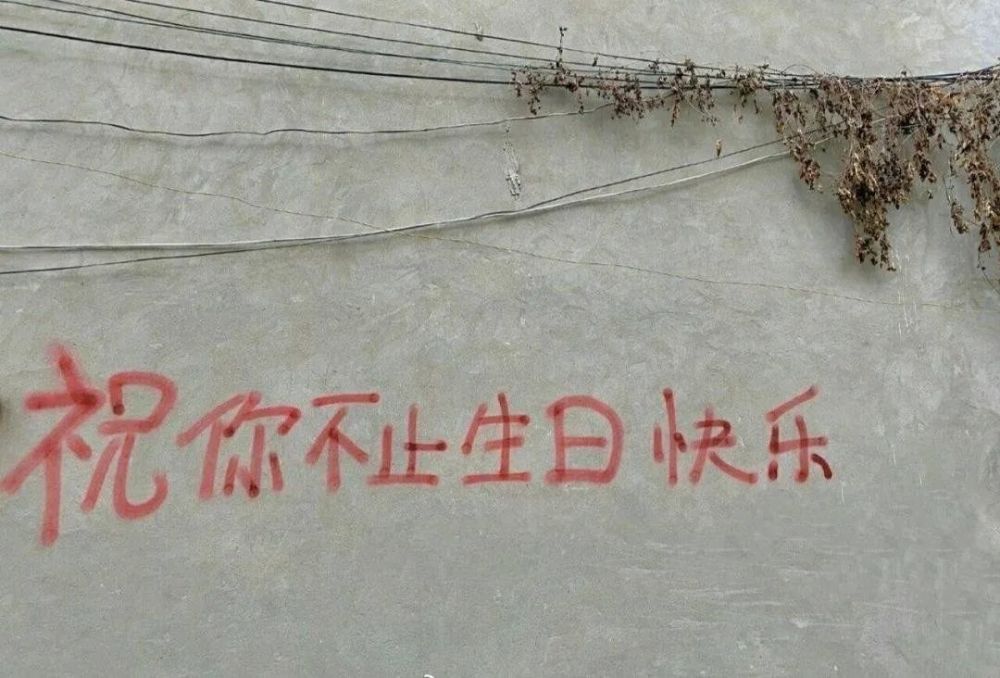 祝你不止生日快乐